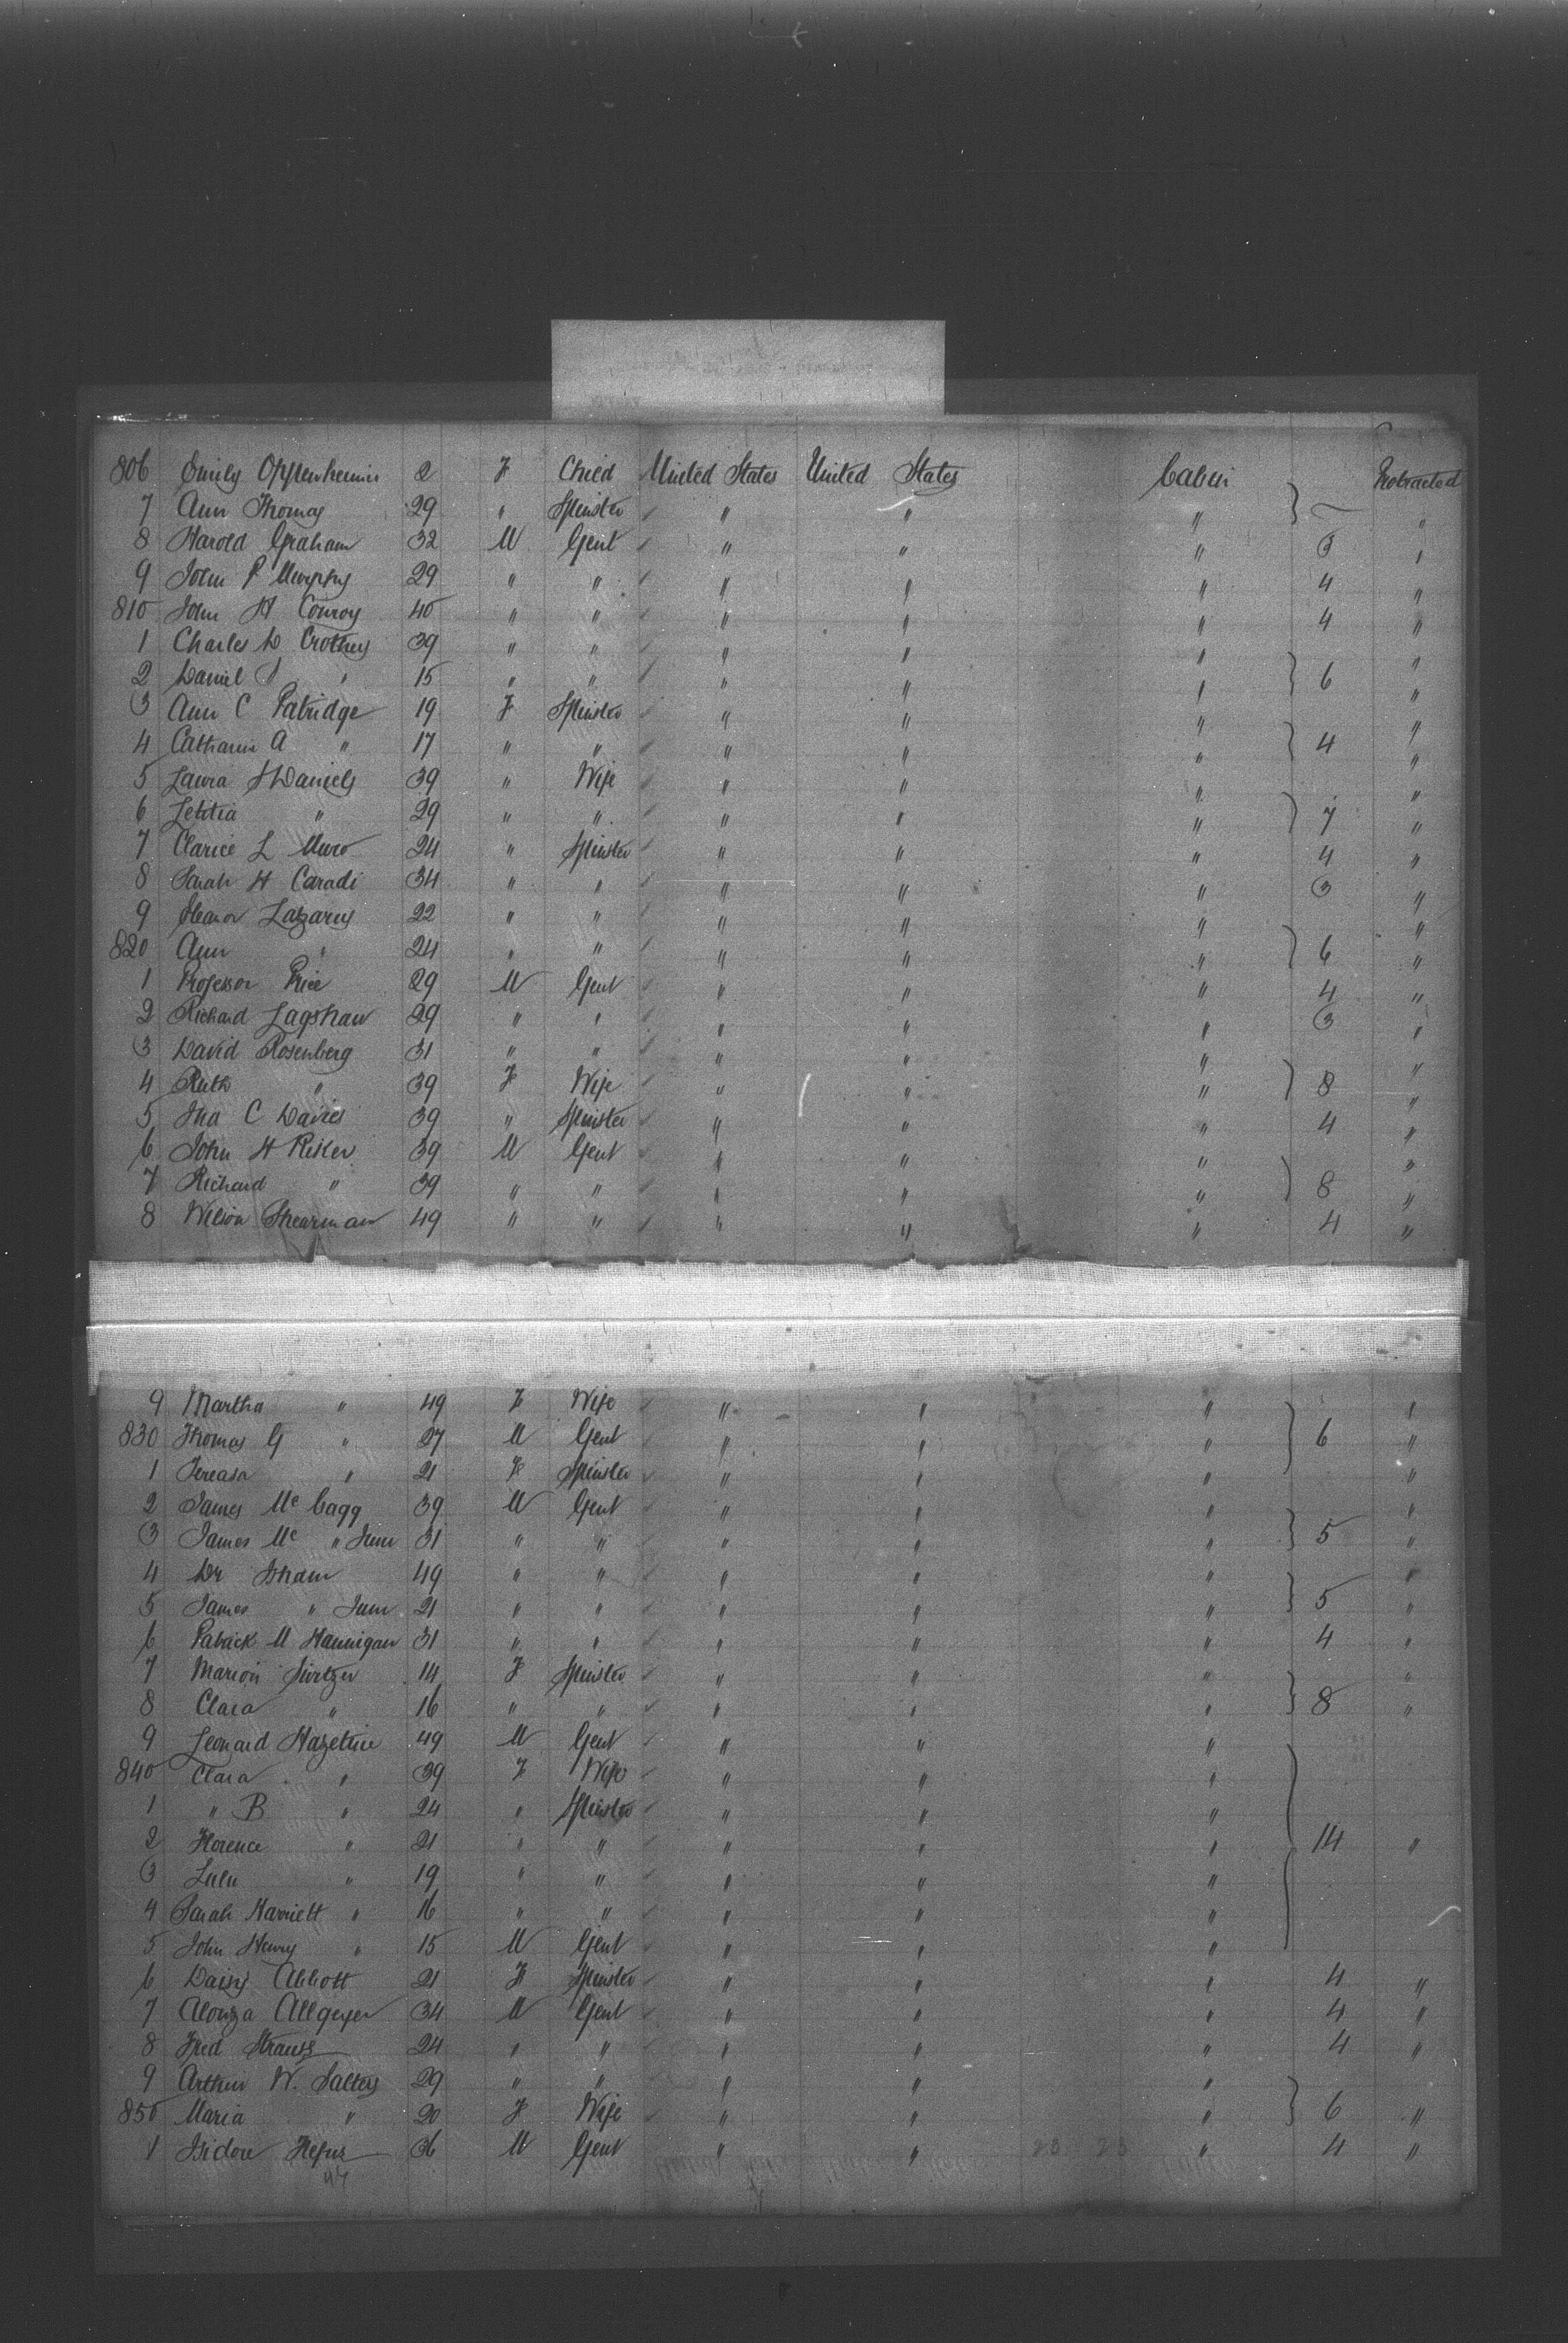 806 Emily Oppenheimer 2 F Child United States United States Cabin Protracted
7 Ann Thomas 29 " Spinster " " " "
8 Harold Graham 32 M Gent " " " 3 "
9 John P Murphy 29 " " " " " 4 "
810 John H Conroy 40 " " " " " 4 "
1 Charles D Crothey 39 " " " " " "
2 Daniel J " 15 " " " " " 6 "
3 Ann C Patridge 19 F Spinster " " " "
4 Catharin A " 17 " " " " " 4 "
5 Laura J Daniels 39 " Wife " " " "
6 Letitia " 29 " " " " " 7 "
7 Clarice L Muro 24 " Spinster " " " 4 "
8 Sarah H Caradi 34 " " " " " 3 "
9 Eleanor Lazarus 22 " " " " " "
820 Ann " 24 " " " " " 6 "
1 Professor Price 29 M Gent " " " 4 "
2 Richard Lagshaw 29 " " " " " 3 "
3 David Rosenberg 31 " " " " " "
4 Ruth " 39 F Wife " " " 8 "
5 Ina C Davies 39 " Spinster " " " 4 "
6 John H Risker 39 M Gent " " " "
7 Richard " 39 " " " " " 8 "
8 Wilson Shearman 49 " " " " " 4 "
9 Martha " 49 F Wife " " " "
830 Thomas G " 27 M Gent " " " 6 "
1 Tereasa " 21 F Spinster " " " "
2 James Mc Cagg 39 M Gent " " " "
3 James Mc " Junr 31 " " " " " 5 "
4 Dr Isham 49 " " " " " "
5 James " Junr 21 " " " " " 5 "
6 Patrick M Hannigan 31 " " " " " 4 "
7 Marion Switzer 14 F Spinster " " " "
8 Clara " 16 " " " " " 8 "
9 Leonard Hazeltine 49 M Gent " " "
840 Clara " 39 F Wife " " "
1 " B " 24 " Spinster " " "
2 Florence " 21 " " " " " 14 "
3 Lulu " 19 " " " " "
4 Sarah Harriett " 16 " " " " "
5 John Henry " 15 M Gent " " "
6 Daisy Abbott 21 F Spinster " " " 4 "
7 Alonza Allgeyer 34 M Gent " " " 4 "
8 Fred Strauss 24 " " " " " 4 "
9 Arthur W. Salters 29 " " " " "
850 Maria " 20 F Wife " " " 6 "
1 Isidore 36 M Gent " " " 4 "